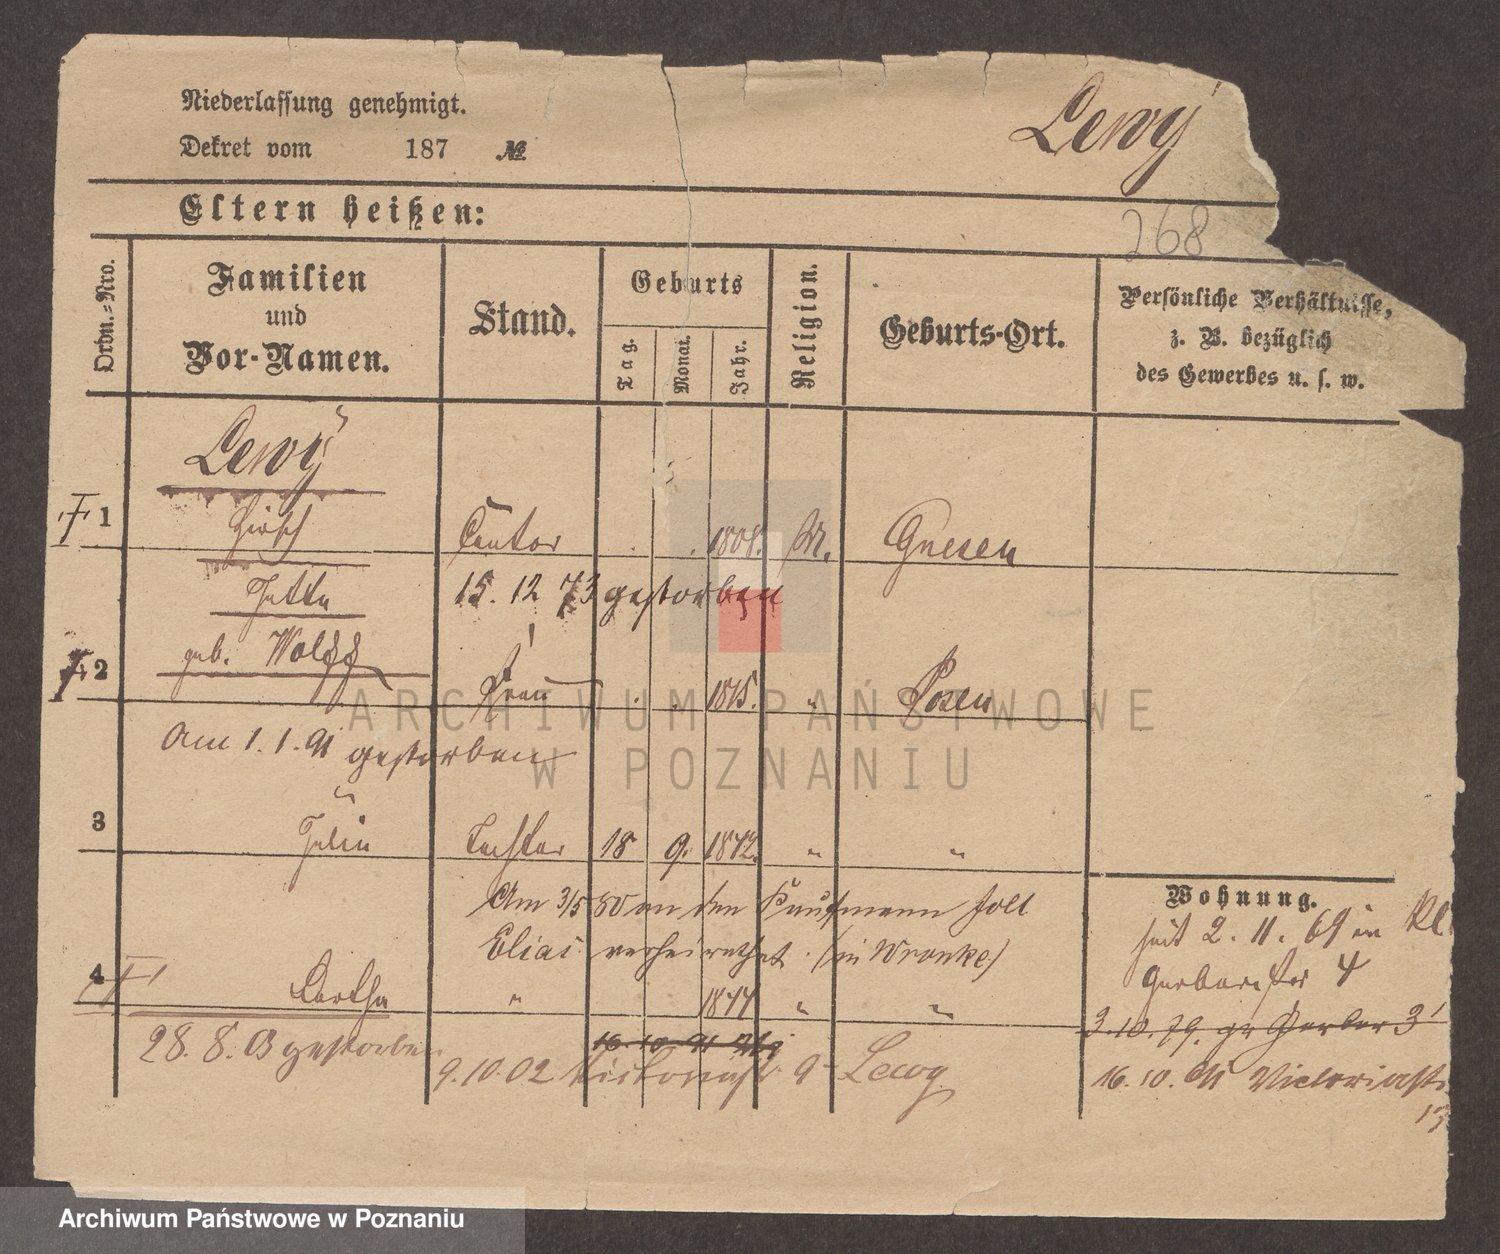 Niederlassung genehmigt.
Dekret vom 187 №
Lewy
268
Eltern heißen:
Ordn.-Nro.
Familien
und
Vor-Namen.
Stand.
Geburts
Tag.
Monat.
Jahr.
Religion.
Geburts-Ort.
Persönliche Verhältnisse,
z. B. bezüglich
des Gewerbes u. s. w.
Lewy
1 Hirsch Cantor 1808. M. Gnesen
Jette 15. 12 73 gestorben
geb. Wolff
2 Frau 1815. " Posen
Am 1. 1. 91 gestorben
3 Julie Tochter 18 9. 1842. " "
Am 3/5 80 an den Kaufmann
Elias verheirathet. (in Wronke)
4 Bertha " 1844 " "
28. 8. 03 gestorben
16. 10. 91
9. 10. 02 Victoriastr 9 Lewy
Wohnung.
seit 2. 11. 69 in Kl
Gerberstr 4
3. 10. 79. gr Gerber 3
16. 10. 91 Victoriastr
13
ARCHIWUM PAŃSTWOWE
W POZNANIU
Archiwum Państwowe w Poznaniu